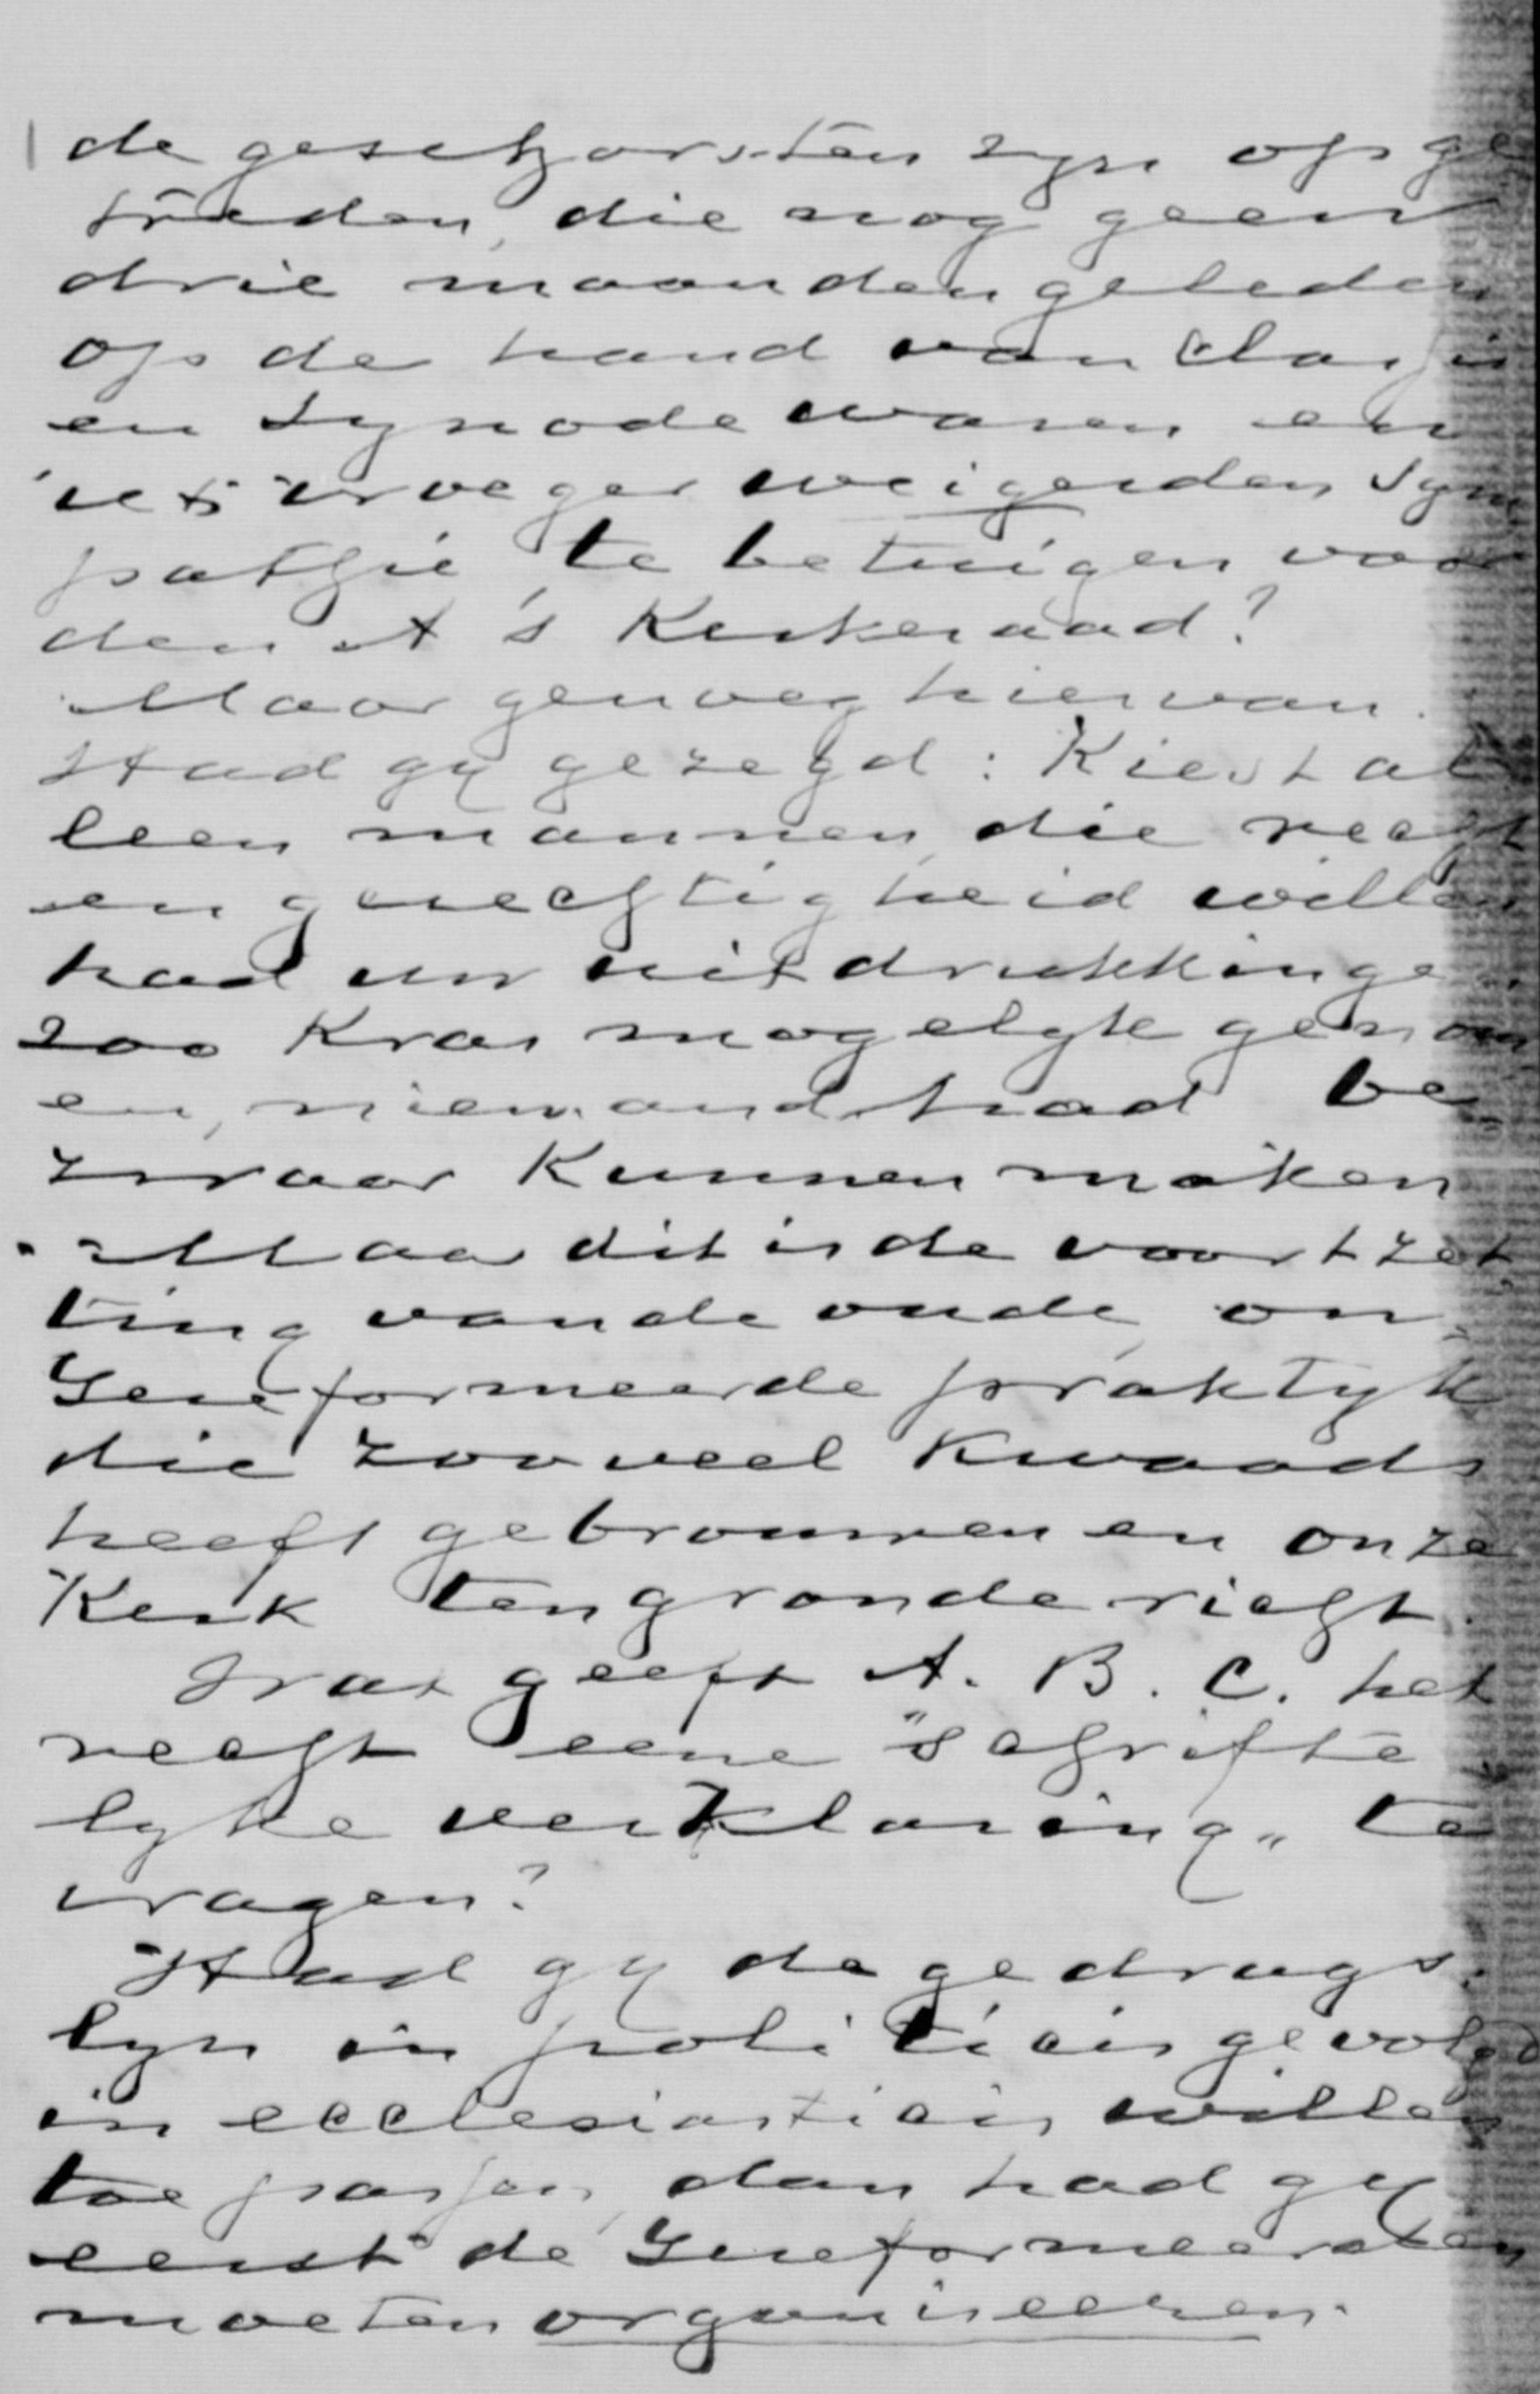 de geschorsten zyn opge
treden, die nog geen
drie maanden geleden
op de hand van Classis
en Synode waren en
'iets vroeger weigerden Sym
pathie te betuigen voor
den A's Kerkeraad?
Maar genoeg hiervan.
Had gy gezegd: Kiest al
leen mannen, die recht
en gerechtigheid willen
had uw uitdrukkingen
zoo Kras mogelyk genomen
en, niemand had be
zwaar Kunnen maken
Maar dit is de voortzet
ting van de oude, on
Gereformeerde praktyk
die zooveel Kwaads
heeft gebrouwen en onze
Kerk ten gronde richt.
Wat geeft A. B. C. het
recht eene "schrifte
lyke verklaring" te
vragen?
Had gy de gedrags
lyn in politicis gevolgd
in ecclesiasticis willen
toepassen, dan had gy
eerst de Gereformeerden
moeten organiseeren.